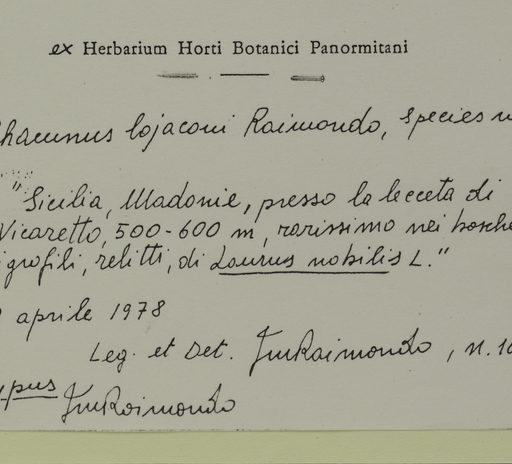 ex Herbarium Horti Botanici Panormitani
hamnus lojaconi Raimondo, species n
"Sicilia, Madonie, presso la lecceta di
Vicaretto, 500-600 m, rarissimo nei bosche
igrofili, relitti, di Laurus nobilis L."
aprile 1978
Leg. et Det. FMRaimondo, n. 10
ypus FMRaimondo